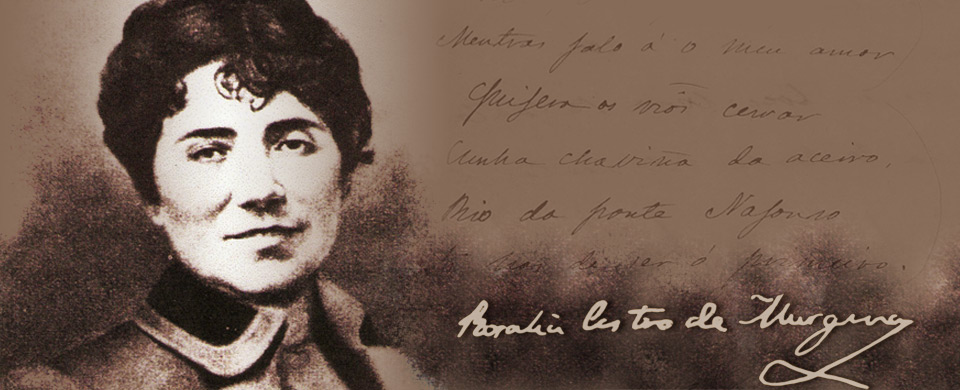 Mentras falo á o meu amor
Quixera os ríos cerrar
Cunha chaviña da aceiro,
Rio da ponte Nafonso
ser ó primeiro.
Rosalía Castro de Murguía